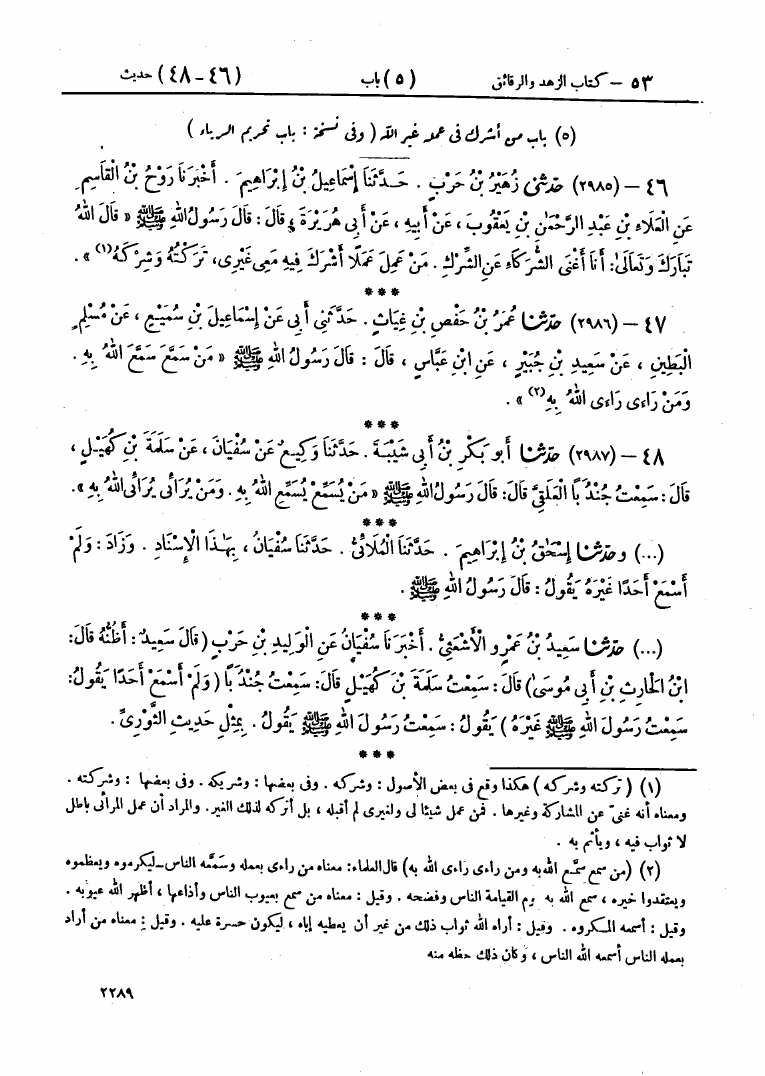 ٥٣ – كتاب الزهد والرقائق (٥) باب (٤٦-٤٨) حديث
(٥) باب من أشرك فى عمله غير الله (وفى نسخة : باب تحريم الرياء)
٤٦ – (٢٩٨٥) حَدَّثَنِى زُهَيْرُ بْنُ حَرْبٍ . حَدَّثَنَا إِسْمَاعِيلُ بْنُ إِبْرَاهِيمَ . أَخْبَرَنَا رَوْحُ بْنُ الْقَاسِمِ
عَنِ الْعَلَاءِ بْنِ عَبْدِ الرَّحْمٰنِ بْنِ يَعْقُوبَ ، عَنْ أَبِيهِ ، عَنْ أَبِى هُرَيْرَةَ ، قَالَ : قَالَ رَسُولُ اللهِ ﷺ « قَالَ اللهُ
تَبَارَكَ وَتَعَالَىٰ : أَنَا أَغْنَى الشُّرَكَاءِ عَنِ الشِّرْكِ . مَنْ عَمِلَ عَمَلًا أَشْرَكَ فِيهِ مَعِى غَيْرِى، تَرَكْتُهُ وَشِرْكَهُ(١) » .
***
٤٧ – (٢٩٨٦) حَدَّثَنَا عُمَرُ بْنُ حَفْصِ بْنِ غِيَاثٍ . حَدَّثَنِى أَبِى عَنْ إِسْمَاعِيلَ بْنِ سُمَيْعٍ ، عَنْ مُسْلِمٍ
الْبَطِينِ ، عَنْ سَعِيدِ بْنِ جُبَيْرٍ ، عَنِ ابْنِ عَبَّاسٍ ، قَالَ : قَالَ رَسُولُ اللهِ ﷺ « مَنْ سَمَّعَ سَمَّعَ اللهُ بِهِ .
وَمَنْ رَاءَى رَاءَى اللهُ بِهِ(٢) » .
***
٤٨ – (٢٩٨٧) حَدَّثَنَا أَبُو بَكْرِ بْنُ أَبِى شَيْبَةَ . حَدَّثَنَا وَكِيعٌ عَنْ سُفْيَانَ ، عَنْ سَلَمَةَ بْنِ كُهَيْلٍ ،
قَالَ : سَمِعْتُ جُنْدُبًا الْعَلَقِىَّ قَالَ: قَالَ رَسُولُ اللهِ ﷺ « مَنْ يُسَمِّعْ يُسَمِّعِ اللهُ بِهِ . وَمَنْ يُرَائِى يُرَائِى اللهُ بِهِ ».
***
(...) وحَدَّثَنَا إِسْحَٰقُ بْنُ إِبْرَاهِيمَ . حَدَّثَنَا الْمُلَائِىُّ . حَدَّثَنَا سُفْيَانُ ، بِهَٰذَا الْإِسْنَادِ . وَزَادَ : وَلَمْ
أَسْمَعْ أَحَدًا غَيْرَهُ يَقُولُ : قَالَ رَسُولُ اللهِ ﷺ .
***
(...) حَدَّثَنَا سَعِيدُ بْنُ عَمْرٍو الْأَشْعَثِىُّ . أَخْبَرَنَا سُفْيَانُ عَنِ الْوَلِيدِ بْنِ حَرْبٍ (قَالَ سَعِيدٌ : أَظُنُّهُ قَالَ:
ابْنُ الْحَارِثِ بْنِ أَبِى مُوسَىٰ) قَالَ : سَمِعْتُ سَلَمَةَ بْنَ كُهَيْلٍ قَالَ: سَمِعْتُ جُنْدُبًا (وَلَمْ أَسْمَعْ أَحَدًا يَقُولُ:
سَمِعْتُ رَسُولَ اللهِ ﷺ غَيْرَهُ) يَقُولُ : سَمِعْتُ رَسُولَ اللهِ ﷺ يَقُولُ . بِمِثْلِ حَدِيثِ الثَّوْرِىِّ .
***
(١) ( تركته وشركه ) هكذا وقع فى بعض الأصول : وشركه . وفى بعضها : وشريكه . وفى بعضها : وشركته .
ومعناه أنه غنىّ عن المشاركة وغيرها . فمن عمل شيئا لى ولغيرى لم أقبله ، بل أتركه لذلك الغير. والمراد أن عمل المرائى باطل
لا ثواب فيه ، ويأثم به .
(٢) (من سمع سمّع الله به ومن راءى راءى الله به) قال العلماء: معناه من راءى بعمله وسَمَّعه الناس ـ ليكرموه ويعظموه
ويعتقدوا خيره ، سمع الله به يوم القيامة الناس وفضحه . وقيل : معناه من سمع بعيوب الناس وأذاعها ، أظهر الله عيوبه .
وقيل : أسمعه المكروه . وقيل : أراه الله ثواب ذلك من غير أن يعطيه إياه ، ليكون حسرة عليه . وقيل : معناه من أراد
بعمله الناس أسمعه الله الناس ، وكان ذلك حظه منه
٢٢٨٩